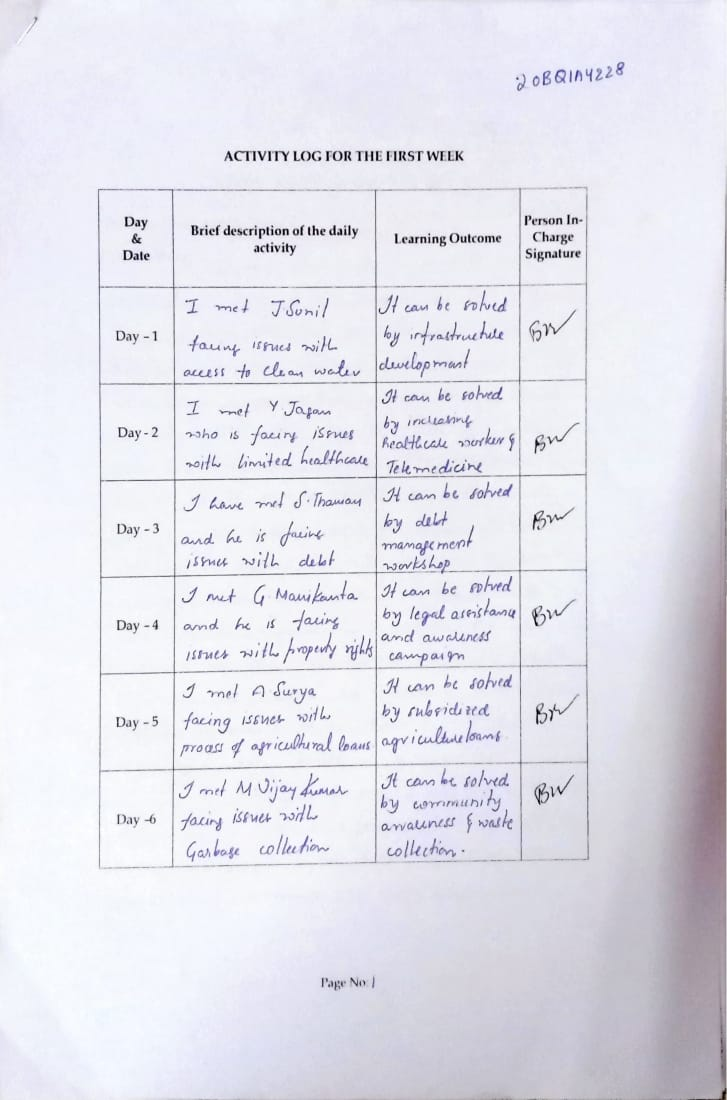 20BQ1A4228
ACTIVITY LOG FOR THE FIRST WEEK
Day
&
Date
Brief description of the daily
activity
Learning Outcome
Person In-
Charge
Signature
Day - 1
I met J Sunil
facing issues with
access to clean water
It can be solved
by infrastructure
development
BW
Day - 2
I met Y Jagan
who is facing issues
with limited healthcare
It can be solved
by increasing
healthcare worker &
Telemedicine
BW
Day - 3
I have met S. Thaman
and he is facing
issues with debt
It can be solved
by debt
management
workshop
BW
Day - 4
I met G Manikanta
and he is facing
issues with property rights
It can be solved
by legal assistance
and awareness
campaign
BW
Day - 5
I met A Surya
facing issues with
process of agricultural loans
It can be solved
by subsidized
agriculture loans
BW
Day -6
I met M Vijay Kumar
facing issues with
Garbage collection
It can be solved
by community
awareness & waste
collection.
BW
Page No: 1